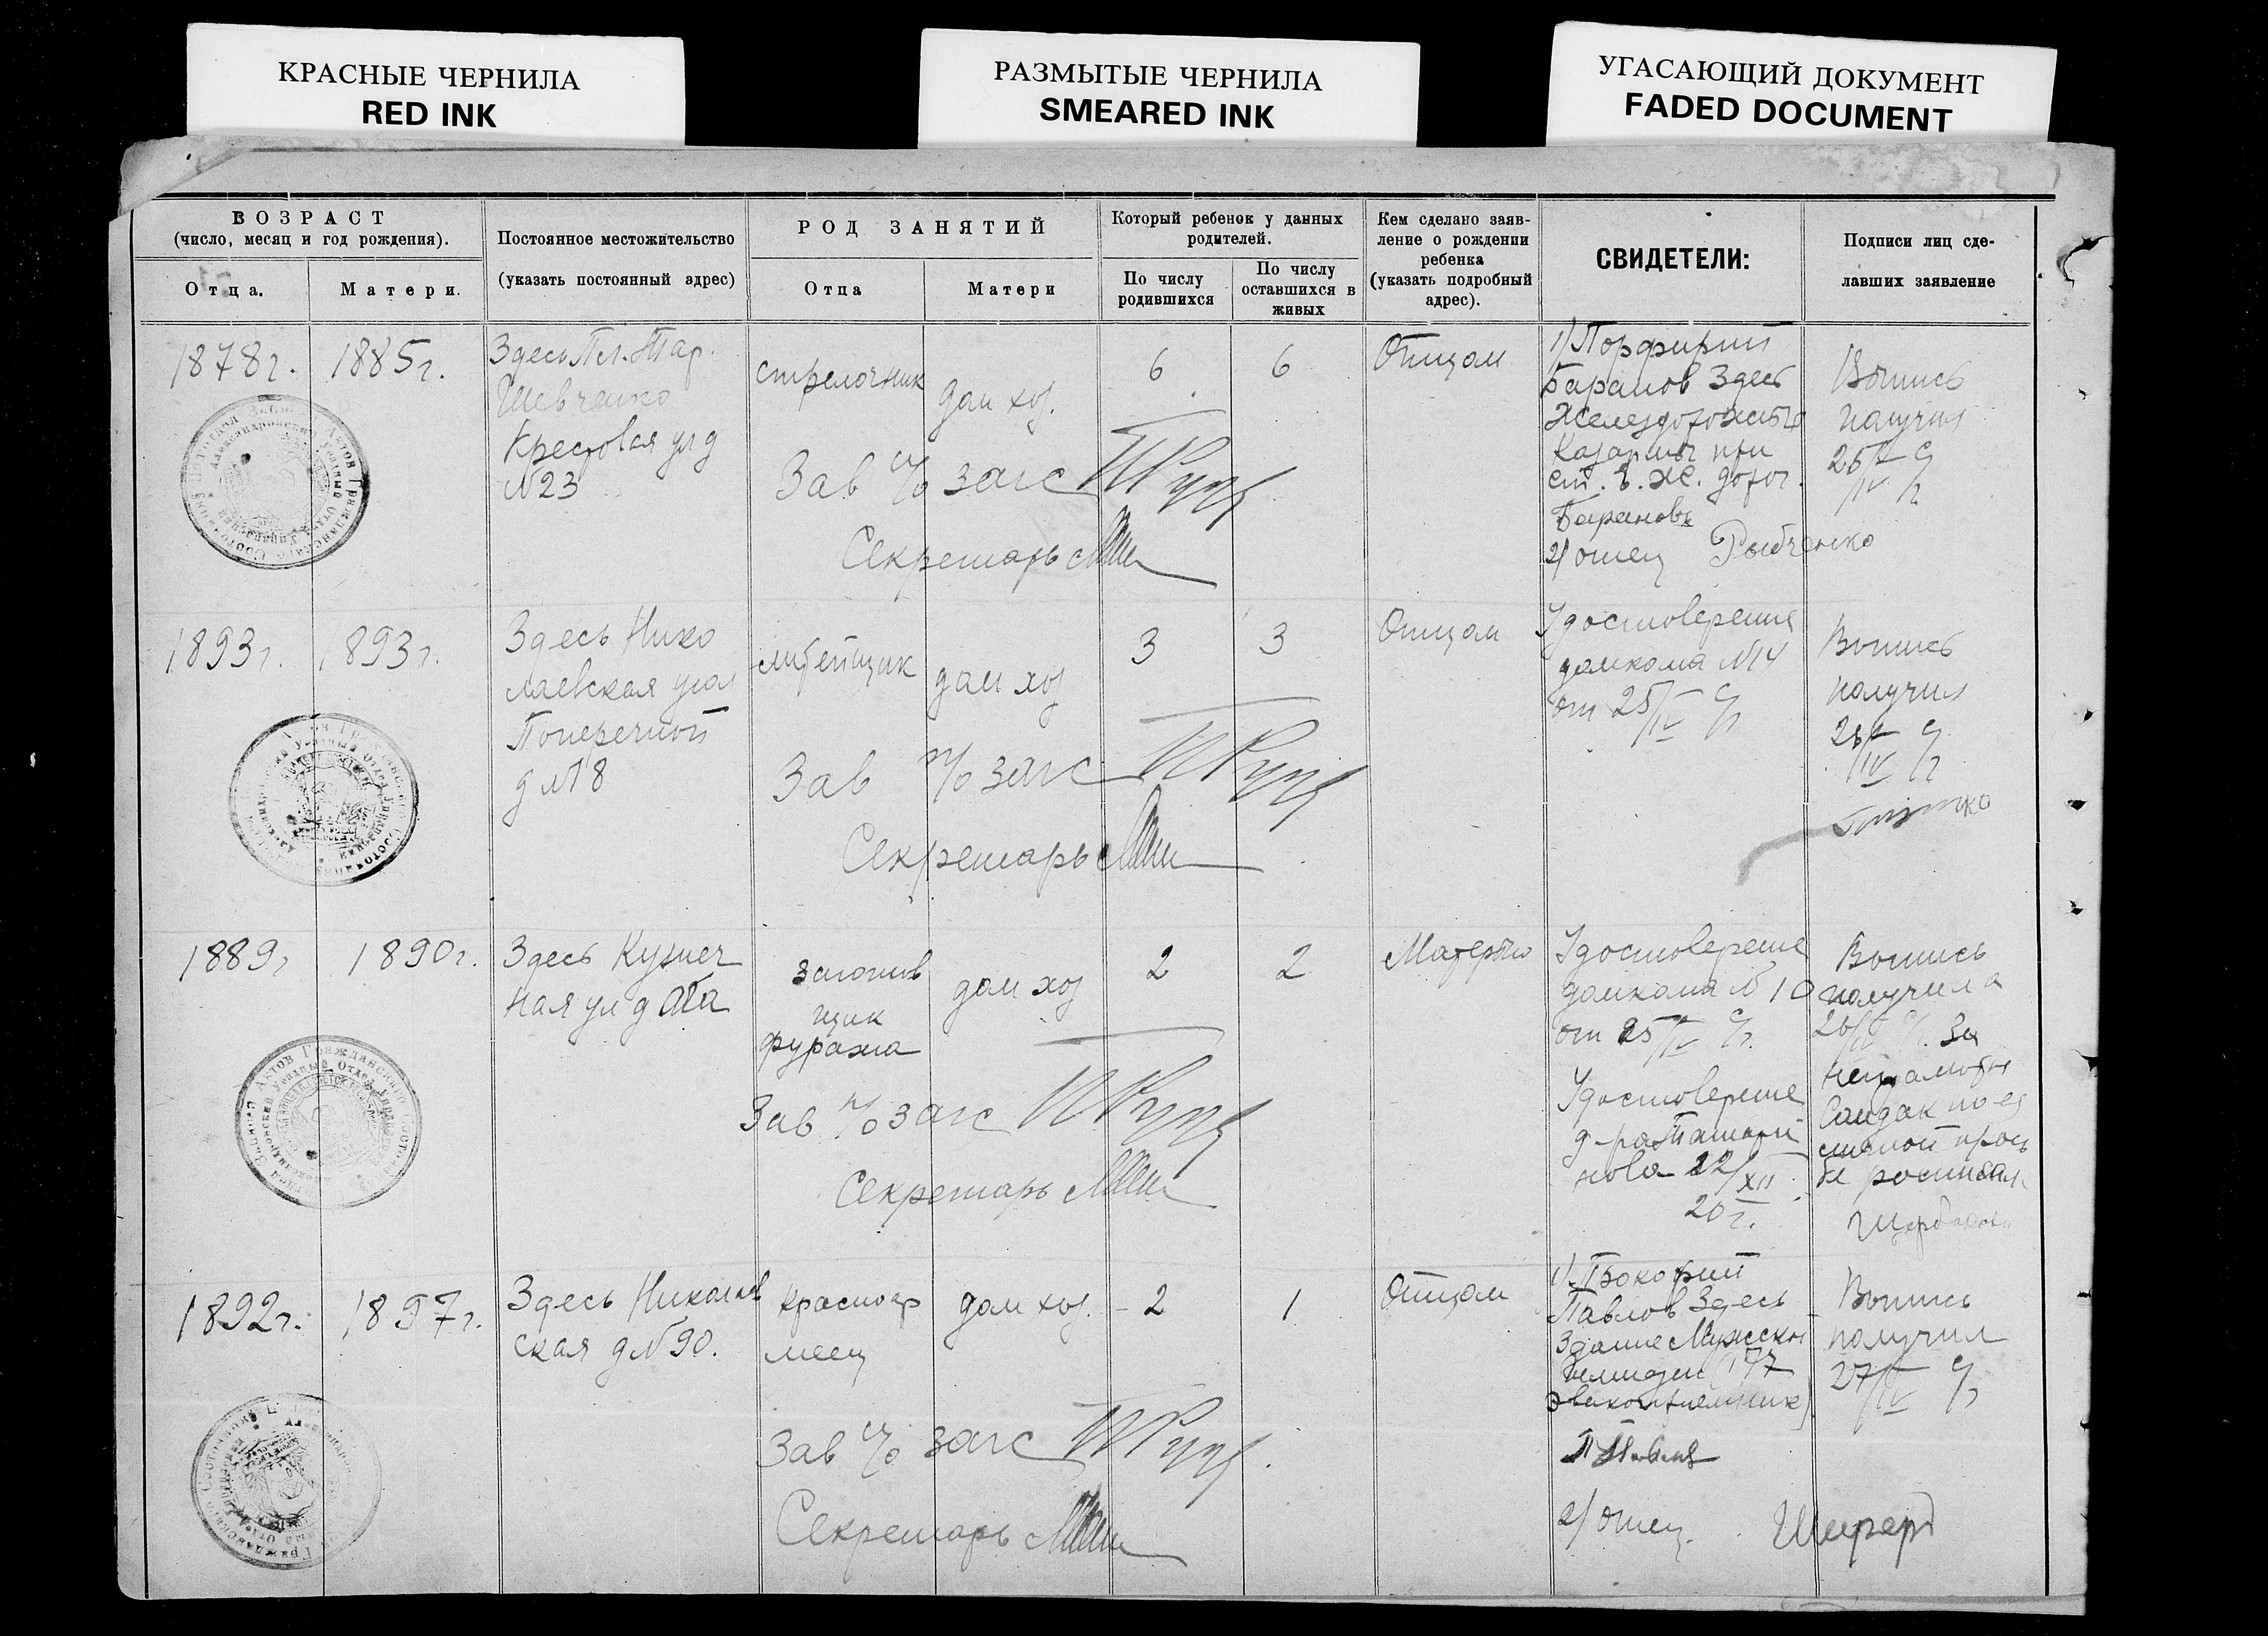 КРАСНЫЕ ЧЕРНИЛА
RED INK
РАЗМЫТЫЕ ЧЕРНИЛА
SMEARED INK
УГАСАЮЩИЙ ДОКУМЕНТ
FADED DOCUMENT
ВОЗРАСТ
(число, месяц и год рождения).
Отца.
Матери.
Постоянное местожительство
(указать постоянный адрес)
РОД ЗАНЯТИЙ
Отца
Матери
Который ребенок у данных
родителей.
По числу
родившихся
По числу
оставшихся в
живых
Кем сделано заяв-
ление о рождении
ребенка
(указать подробный
адрес).
СВИДЕТЕЛИ:
Подписи лиц сде-
лавших заявление
1878г.
1885г.
Здесь Пл. Тар.
Шевченко
Крестовая ул д
№23
стрелочник
дом хоз.
6
6
Отцом
1) Порфирий
Баранов Здесь
Желездорожные
Казармы при
ст. Е. Ж. дорог.
Баранов
2) отец Рыбченко
Выпись
получил
26/IV с/г
Зав п/о загс
Секретарь
1893г.
1893г.
Здесь Нико
лаевская угол
Поперечной
д №18
литейщик
дом хоз
3
3
Отцом
Удостоверение
домкома №14
от 25/IV с/г
Выпись
получил
26/IV с/г
Зав п/о загс
Секретарь
1889г
1890г.
Здесь Кузнеч
ная ул д
заготов
щик
фуража
дом хоз
2
2
Матерью
Удостоверение
домкома № 10
от 25/IV с/г.
Удостоверение
д-ра
нова 22/XII
20 г.
Выпись
получила
26/IV с/г. За
неграмотн
Сандак по ея
личной прось
бе росписал
Зав п/о загс
Секретарь
1892г.
1897г.
Здесь Николаев
ская д №90.
красноар
меец
дом хоз.
2
1
Отцом
1) Прокофий
Павлов Здесь
Здание Мужской
Гимназии (177
Эвакоприемник)
2) отец. Шиферд
Выпись
получил
27/IV с/г
Зав п/о загс
Секретарь